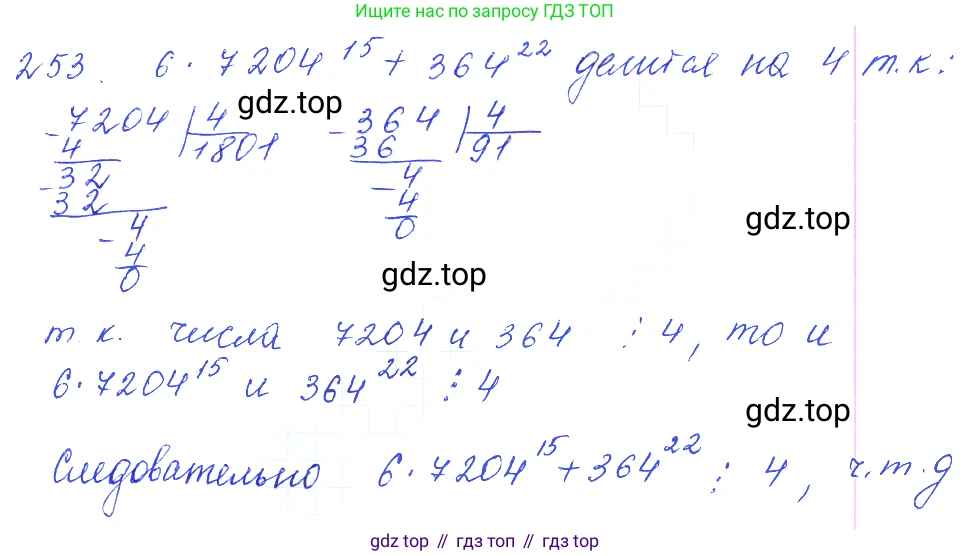 Ищите нас по запросу ГДЗ ТОП
253. 6·7204¹⁵ + 364²² делится на 4 т.к:
gdz.top
-7204 | 4 -364 | 4
4 1801 36 91
-32 -4
32 4
-4 0
4
0
gdz.top
gdz.top
т.к. числа 7204 и 364 ⋮ 4, то и
6·7204¹⁵ и 364²² ⋮ 4
gdz.top
Следовательно 6·7204¹⁵+364²² ⋮ 4, ч.т.д
gdz.top // гдз топ // gdz.top